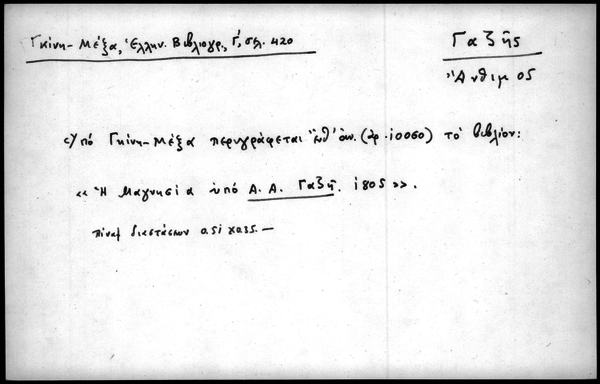 Γκίνη-Μέξα, Ἑλλην. Βιβλιογρ., Γ', σελ. 420
Γαζῆς
Ἄνθιμος
Ὑπό Γκίνη-Μέξα περιγράφεται ἀν. (ἀρ. 10060) τό βιβλίον:
«Ἡ Μαγνησία ὑπό Α. Α. Γαζῆ. 1805».
πίναξ διαστάσεων 0.51 Χ 0.35.—